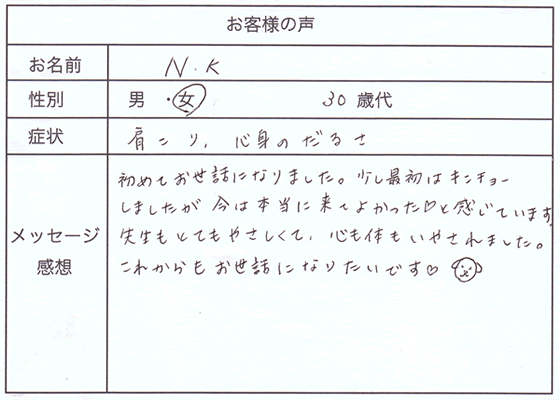 お客様の声
お名前 N.K
性別 男 ・ 女 30 歳代
症状 肩こり、心身のだるさ
メッセージ
感想
初めてお世話になりました。少し最初はキンチョー
しましたが 今は本当に来てよかった♡と感じています。
先生もとてもやさしくて、心も体もいやされました。
これからもお世話になりたいです♡